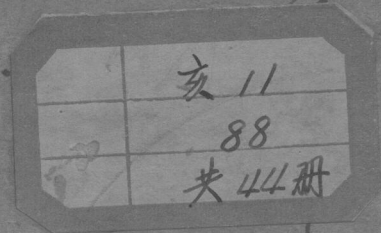 亥 11
88
共 44 册